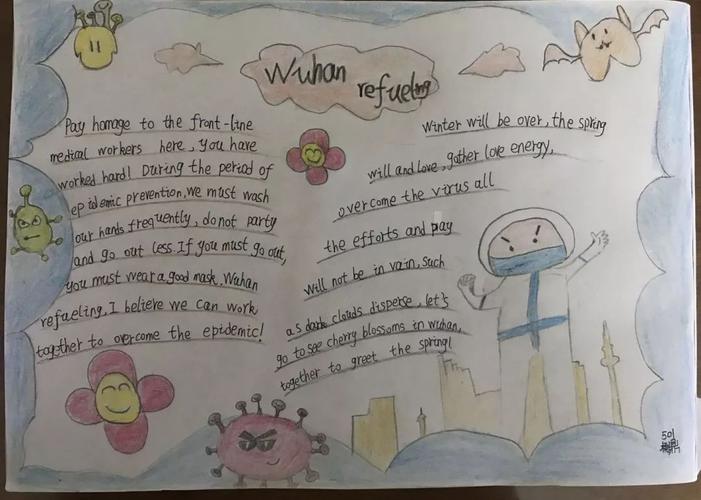 Wuhan
refueling
Pay homage to the front-line
medical workers here, you have
worked hard! During the period of
epidemic prevention, we must wash
our hands frequently, do not party
and go out less If you must go out,
you must wear a good mask. Wuhan
refueling, I believe we can work
together to overcome the epidemic!
Winter will be over, the spring
will and love, gather love energy,
overcome the virus all
the efforts and pay
will not be in vain, such
as dark clouds disperse, let's
go to see cherry blossoms in wuhan,
together to greet the spring!
501